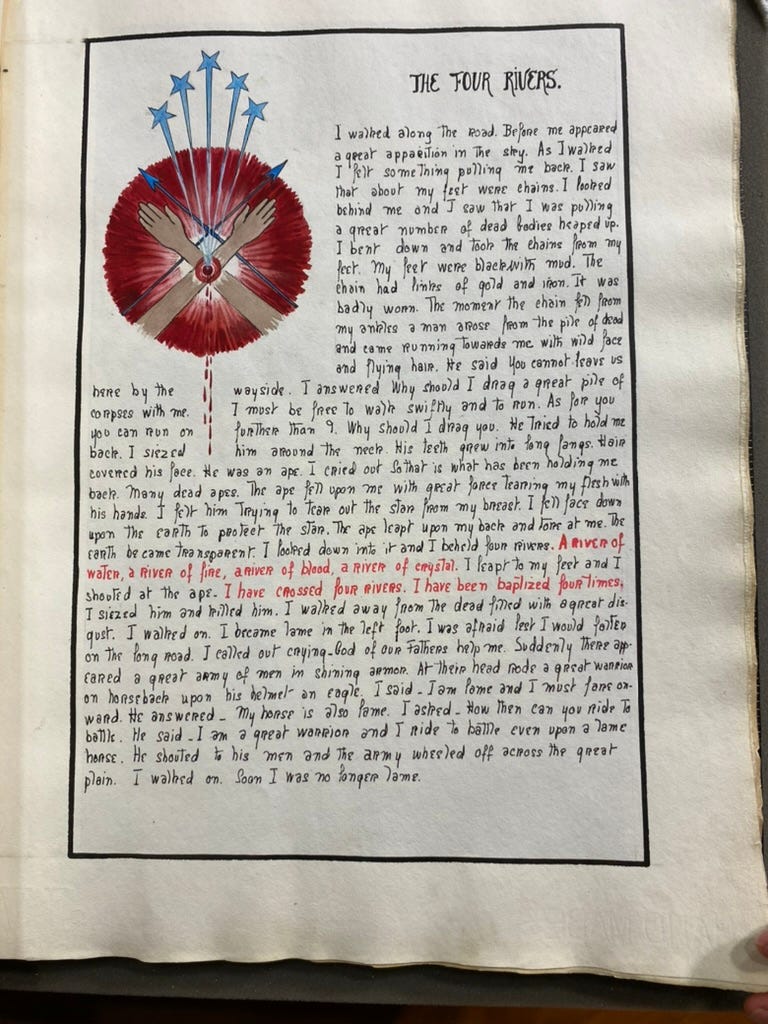 THE FOUR RIVERS.
I walked along the road. Before me appeared
a great apparition in the sky. As I walked
I felt something pulling me back. I saw
that about my feet were chains. I looked
behind me and I saw that I was pulling
a great number of dead bodies heaped up.
I bent down and took the chains from my
feet. My feet were black with mud. The
chain had links of gold and iron. It was
badly worn. The moment the chain fell from
my ankles a man arose from the pile of dead
and came running towards me with wild face
and flying hair. He said You cannot leave us
here by the wayside. I answered Why should I drag a great pile of
corpses with me. I must be free to walk swiftly and to run. As for you
you can run on further than I. Why should I drag you. He tried to hold me
back. I siezed him around the neck. His teeth grew into long fangs. Hair
covered his face. He was an ape. I cried out So that is what has been holding me
back. Many dead apes. The ape fell upon me with great force tearing my flesh with
his hands. I felt him trying to tear out the star from my breast. I fell face down
upon the earth to protect the star. The ape leapt upon my back and tore at me. The
earth became transparent. I looked down into it and I beheld four rivers. A river of
water, a river of fire, a river of blood, a river of crystal. I leapt to my feet and I
shouted at the ape - I have crossed four rivers. I have been baptized four times.
I siezed him and killed him. I walked away from the dead filled with a great dis-
gust. I walked on. I became lame in the left foot. I was afraid lest I would falter
on the long road. I called out crying - God of our Fathers help me. Suddenly there app-
eared a great army of men in shining armor. At their head rode a great warrior
on horseback upon his helmet an eagle. I said - I am lame and I must fare on-
ward. He answered - My horse is also lame. I asked - How then can you ride to
battle. He said - I am a great warrior and I ride to battle even upon a lame
horse. He shouted to his men and the army wheeled off across the great
plain. I walked on. Soon I was no longer lame.